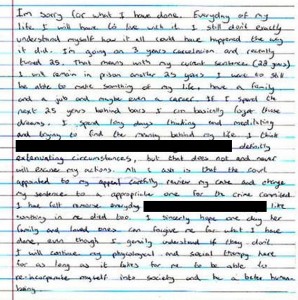 I'm sorry for what I have done. Everyday of my
life I will have to live with it. I still don't exactly
understand myself how it all could have happened the way
it did. I'm going on 3 years incarceration and recently
turned 25. That means with my current sentence (28 years)
I will remain in prison another 25 years. I want to still
be able to make something of my life, have a family
and a job and maybe even a career. If I spend the
next 25 years behind bars I can basically forget those
dreams. I spend long days thinking and meditating
and trying to find the meaning behind my life. I think
definitly
extenuating circumstances, but that does not and never
will excuse my actions. All I ask is that the court
appointed to my appeal carefully review my case and change
my sentence to a appropriate one for the crime commited
I have felt remorse everyday like
something in me died too. I sincerely hope one day her
family and loved ones can forgive me for what I have
done, even though I genuinly understand if they don't
I will continue my physological and social therapy here
for as long as it takes for me to be able to
reincorporate myself into society and be a better human
being.